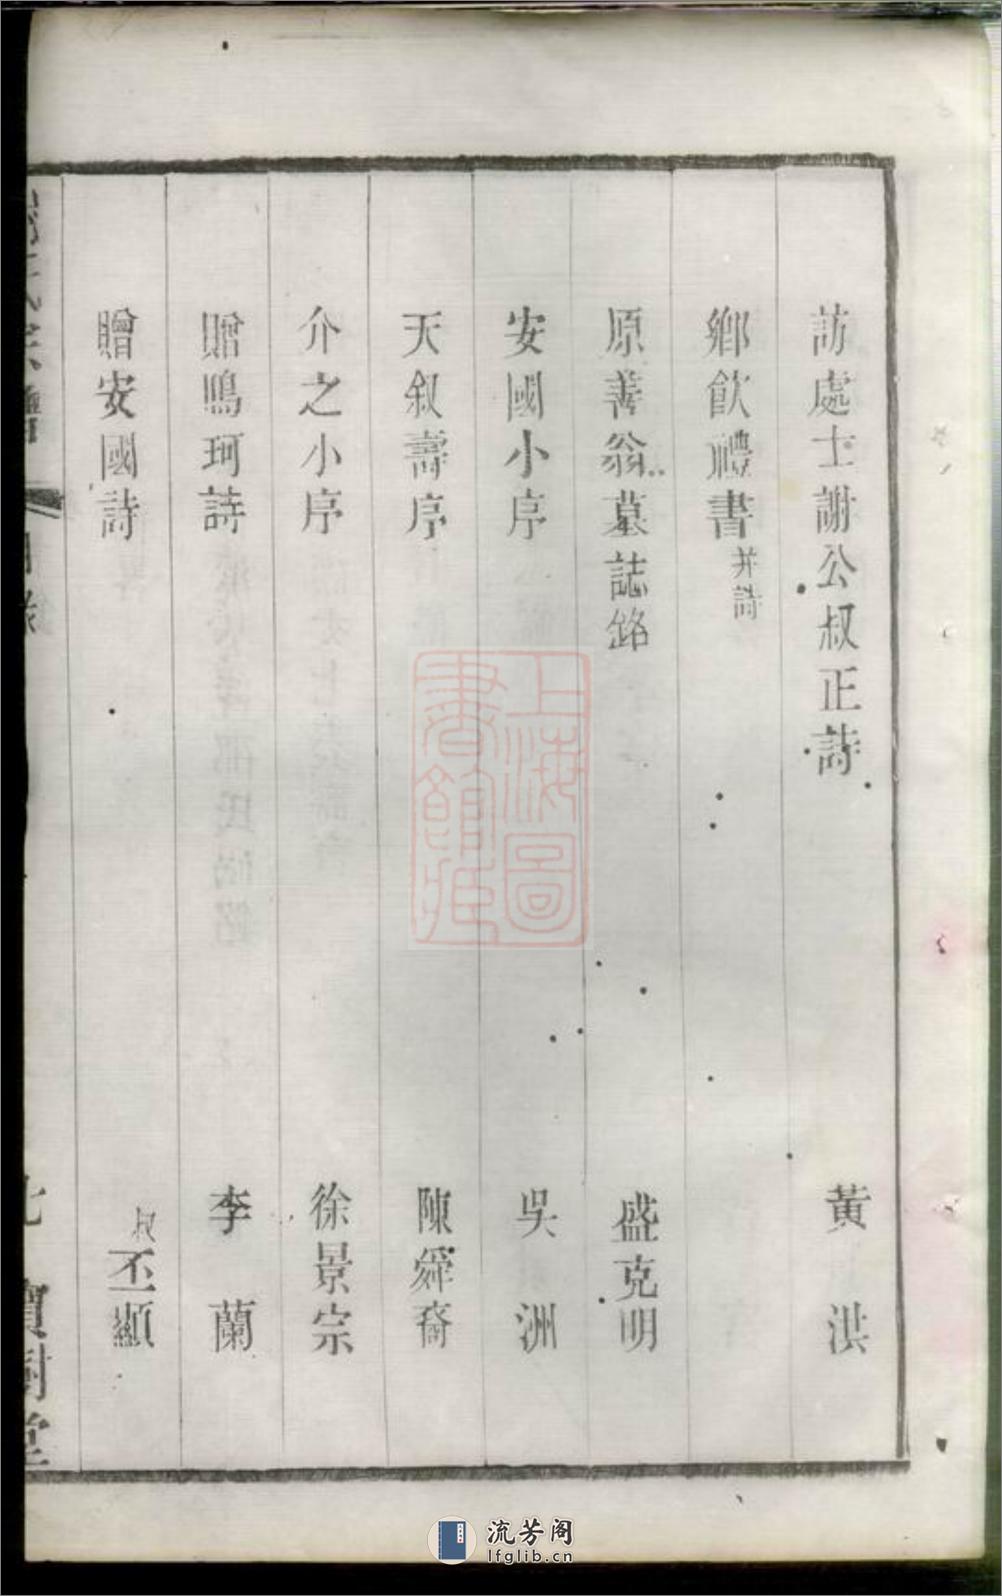 訪處士謝公叔正詩 黃洪
鄉飲禮書 并詩
原善翁墓誌銘 盛克明
安國小序 吳洲
天叙壽序 陳舜裔
介之小序 徐景宗
贈鳴珂詩 李蘭
贈安國詩 叔丕顯
謝氏宗譜 目錄 七 寶樹堂
上海圖書館藏
流芳阁
lfglib.cn